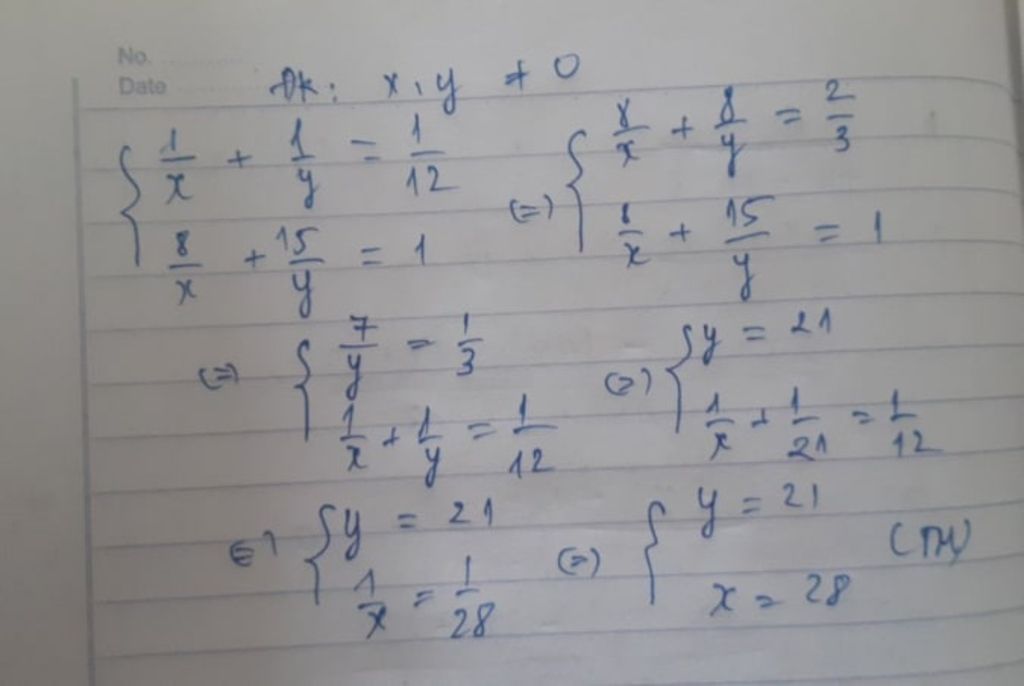 No.
Date
ĐK: x, y ≠ 0
{ 1/x + 1/y = 1/12
8/x + 15/y = 1
(=) { 8/x + 8/y = 2/3
8/x + 15/y = 1
(=) { 7/y = 1/3
1/x + 1/y = 1/12
(=) { y = 21
1/x + 1/21 = 1/12
(=) { y = 21
1/x = 1/28
(=) { y = 21
x = 28 (TM)